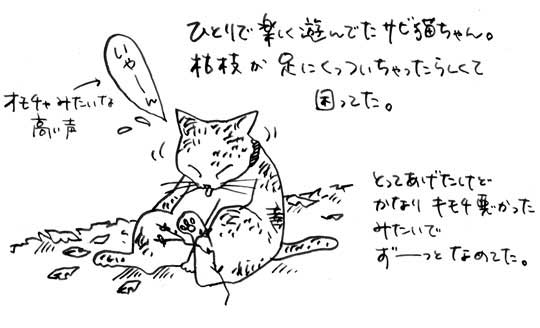 ひとりで楽しく遊んでたサビ猫ちゃん。
枯枝が足にくっついちゃったらしくて
困ってた。
いやーん
オモチャみたいな
高い声
とってあげたけど
かなりキモチ悪かった
みたいで
ずーっとなめてた。